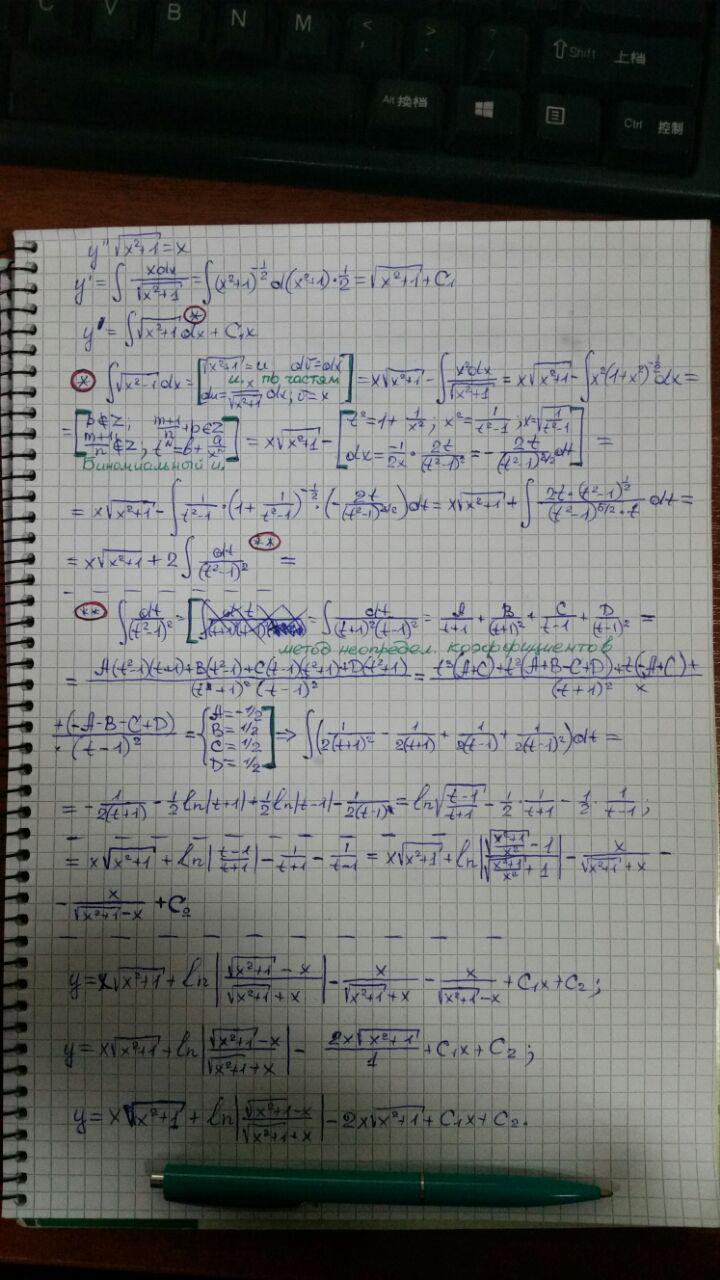 C V B N M < , > . ? /
⇧Shift 上档
Alt 换档
Ctrl 控制
y'' √(x²+1) = x
y' = ∫ xdx/√(x²+1) = ∫(x²+1)^(-1/2) d(x²+1)·1/2 = √(x²+1) + C₁
y = ∫√(x²+1) dx + C₁x
(*) ∫√(x²-1) dx = [√(x²+1) = u dv = dx и. по частям du = x/√(x²+1) dx; v = x] = x√(x²+1) - ∫ x²dx/√(x²+1) = x√(x²+1) - ∫x²(1+x²)^(-1/2) dx =
= [p∉Z; (m+1)/n + p∈Z (m+1)/n ∉Z; tⁿ = b + a/xⁿ Биномиальный и.] = x√(x²+1) - [t² = 1 + 1/x²; x² = 1/(t²-1); x = √(1/(t²-1)) dx = -1/2x · 2t/(t²-1)² = - 2t/(t²-1)^(3/2) dt] =
= x√(x²+1) - ∫ 1/(t²-1) · (1 + 1/(t²-1))^(-1/2) · (- 2t/(t²-1)^(3/2)) dt = x√(x²+1) + ∫ 2t·(t²-1)^(1/2)/((t²-1)^(5/2)·t) dt =
= x√(x²+1) + 2∫ dt/(t²-1)² (**) =
(**) ∫ dt/(t²-1)² = [ = ∫ dt/((t+1)²(t-1)²) = A/(t+1) + B/(t+1)² + C/(t-1) + D/(t-1)² =
метод неопредел. коэффициентов
= (A(t²-1)(t+1)+B(t²-1)+C(t-1)(t²+1)+D(t²+1))/((t²+1)²(t-1)²) = t³(A+C)+t²(A+B-C+D)+t(-A+C)+ / (t+1)² ×
+(-A-B-C+D) / × (t-1)² = {A = -1/2 B = 1/2 C = 1/2 D = 1/2] ⇒ ∫(1/2(t+1)² - 1/2(t+1) + 1/2(t-1) + 1/2(t-1)²)dt =
= - 1/2(t+1) - 1/2 ln|t+1| + 1/2 ln|t-1| - 1/2(t-1) = ln√((t-1)/(t+1)) - 1/2 · 1/(t+1) - 1/2 · 1/(t-1);
= x√(x²+1) + ln|(t-1)/(t+1)| - 1/(t+1) - 1/(t-1) = x√(x²+1) + ln|(√((x²+1)/x²) - 1)/(√((x²+1)/x²) + 1)| - x/(√(x²+1)+x) -
- x/(√(x²+1)-x) + C₂
y = x√(x²+1) + ln|(√(x²+1) - x)/(√(x²+1) + x)| - x/(√(x²+1)+x) - x/(√(x²+1)-x) + C₁x + C₂;
y = x√(x²+1) + ln|(√(x²+1)-x)/(√(x²+1)+x)| - 2x√(x²+1)/1 + C₁x + C₂;
y = x√(x²+1) + ln|(√(x²+1)-x)/(√(x²+1)+x)| - 2x√(x²+1) + C₁x + C₂.